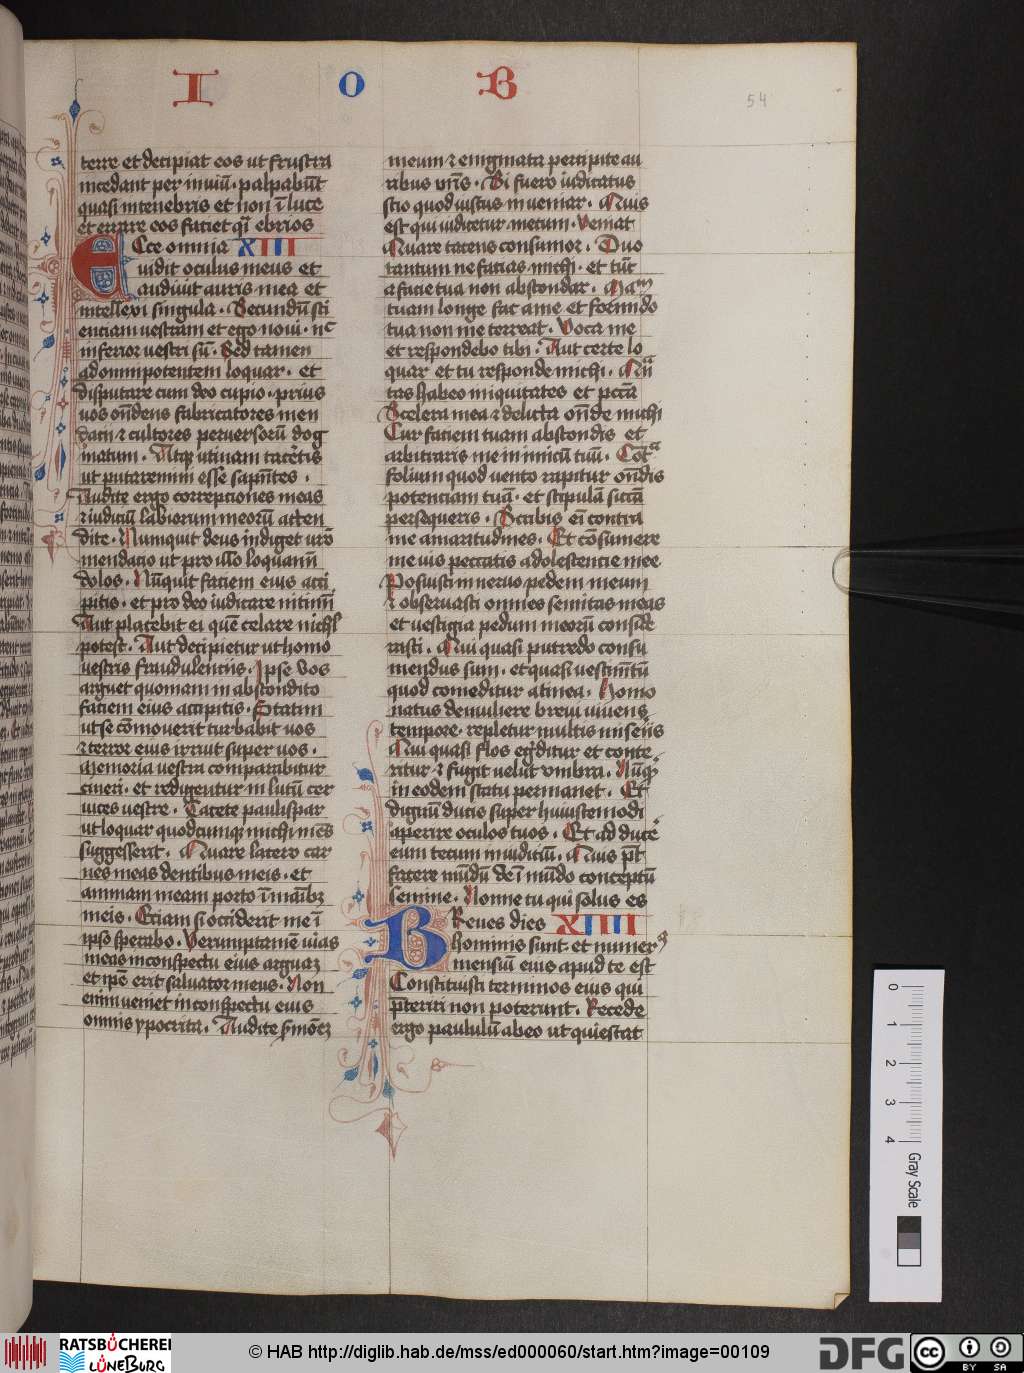 I O B
54
terre et decipiat eos ut frustra
incedant per inuiū · palpabūt
quasi in tenebris et non ī luce
et errare eos faciet q̄i ebrios
Ecce omnia XIII
uidit oculus meus et
audiuit auris mea et
intellexi singula . Secundū sci
entiam vestram et ego noui . nec
inferior vestri sū . Sed tamen
ad omnipotentem loquar . et
disputare cum deo cupio . prius
uos on̄dens fabricatores men
dacii ⁊ cultores peruersorū dog
matum . Atqꝫ utinam tacetis
ut putaremini esse sapn̄tes .
Audite ergo correpciones meas
⁊ iudiciū labiorum meorū atten
dite . Numquit deus indiget ur̄o
mendacio ut pro illo loquamī
dolos . Nūquit faciem eius acci
pitis . et pro deo iudicare nitimī
Aut placebit ei quē celare nichil
potest . Aut decipietur ut homo
uestris fraudulentiis . Ipse vos
arguet quoniam in abscondito
faciem eius accipitis . Statim
ut se cōmouerit turbabit uos
⁊ terror eius irruit super uos .
Memoria vestra comparabitur
cineri . et redigentur in lutū cer
uices uestre . Tacete paulisper
ut loquar quodcumqꝫ michi mēs
suggesserit . Quare lacero car
nes meas dentibus meis . et
animam meam porto ī manibꝫ
meis . Etiam si occiderit me ī
ipso sperabo . Verumptamē uias
meas in conspectu eius arguaꝫ
et ipē erit saluator meus . Non
enim ueniet in conspectu eius
omnis ypocrita . Audite s̄moēꝫ
meum ⁊ enigmata percipite au
ribus vr̄is . Si fuero iudicatus
scio quod iustus inueniar . Quis
est qui iudicetur mecum . Veniat
Quare tacens consumor . Duo
tantum ne facias michi . et tūc
a facie tua non abscondar . Manū
tuam longe fac a me et formido
tua non me terreat . Voca me
et respondebo tibi . Aut certe lo
quar et tu responde michi .
tas habeo iniquitates et pccā
Scelera mea ⁊ delicta on̄de michi
Cur faciem tuam abscondis et
arbitraris me inimicū tuū .
folium quod vento rapitur on̄dis
potenciam tuā . et stipulā siccā
persequeris . Scribis eī contra
me amaritudines . Et cōsumere
me uis peccatis adolescencie mee
Posuisti in neruo pedem meum
⁊ obseruasti omnes semitas meas
et vestigia pedum meorū conside
rasti . Qui quasi putredo consu
mendus sum . et quasi vestimētū
quod comeditur a tinea . Homo
natus de muliere breui viuens
tempore . repletur multis miseriis
Qui quasi flos egditur et conte
ritur ⁊ fugit velut vmbra . Nūqꝫ
in eodem statu permanet . Et
dignū ducis super huiuscemodi
aperire oculos tuos . Et adducē
eum tecum in iudiciū . Quis pt̄
facere mūdū de ī mūdo conceptū
semine . Nonne tu qui solus es
Breues dies XIIII
hominis sunt et numerꝰ
mensiū eius apud te est
Constituisti terminos eius qui
p̄teriri non poterunt . Recede
ergo paululū ab eo ut quiescat
0
1
2
3
4
Gray Scale
RATSBÜCHEREI
LÜNEBURG
© HAB http://diglib.hab.de/mss/ed000060/start.htm?image=00109
DFG
cc
BY SA